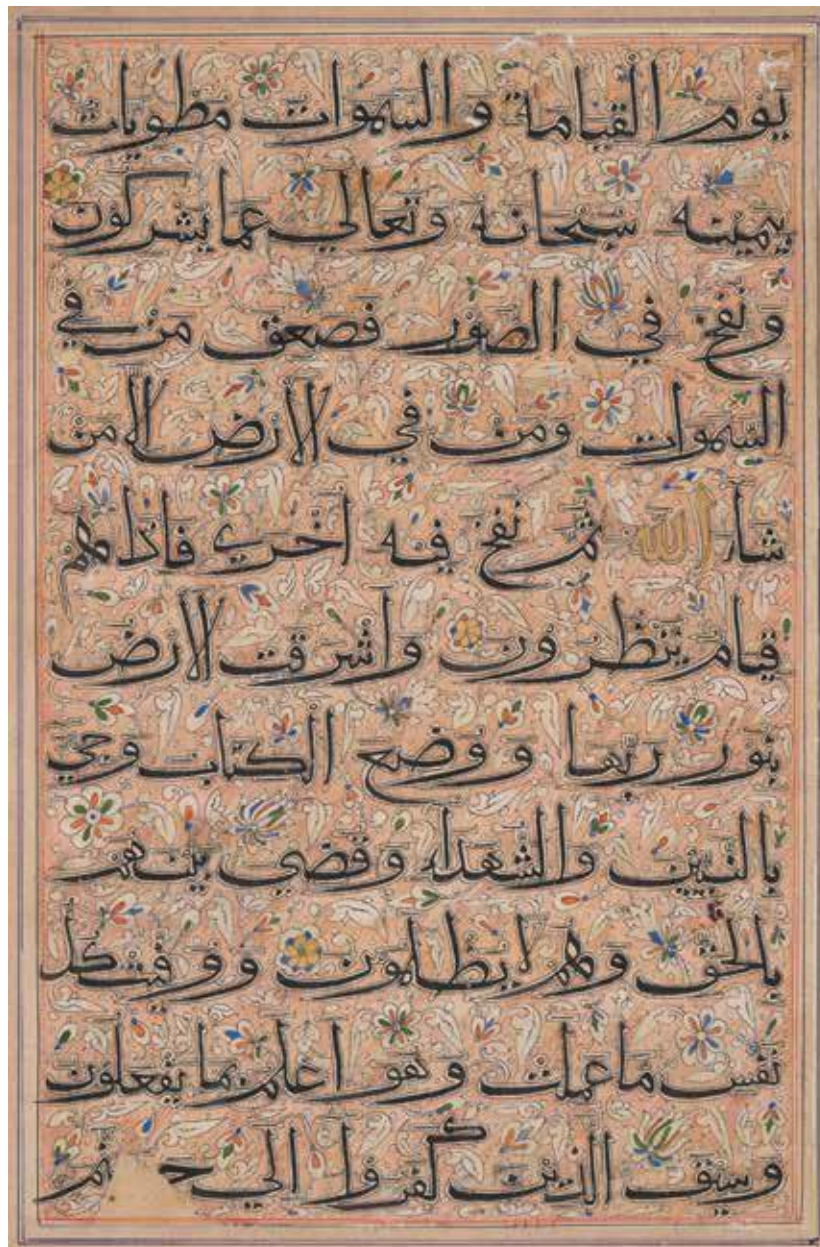 يوم القيامة والسموات مطويات
بيمينه سبحانه وتعالى عما يشركون
ونفخ في الصور فصعق من في
السموات ومن في الارض الا من
شاء الله ثم نفخ فيه اخرى فاذا هم
قيام ينظرون واشرقت الارض
بنور ربها ووضع الكتاب وجيء
بالنبيين والشهداء وقضي بينهم
بالحق وهم لا يظلمون ووفيت كل
نفس ما عملت وهو اعلم بما يفعلون
وسيق الذين كفروا الى جهنم